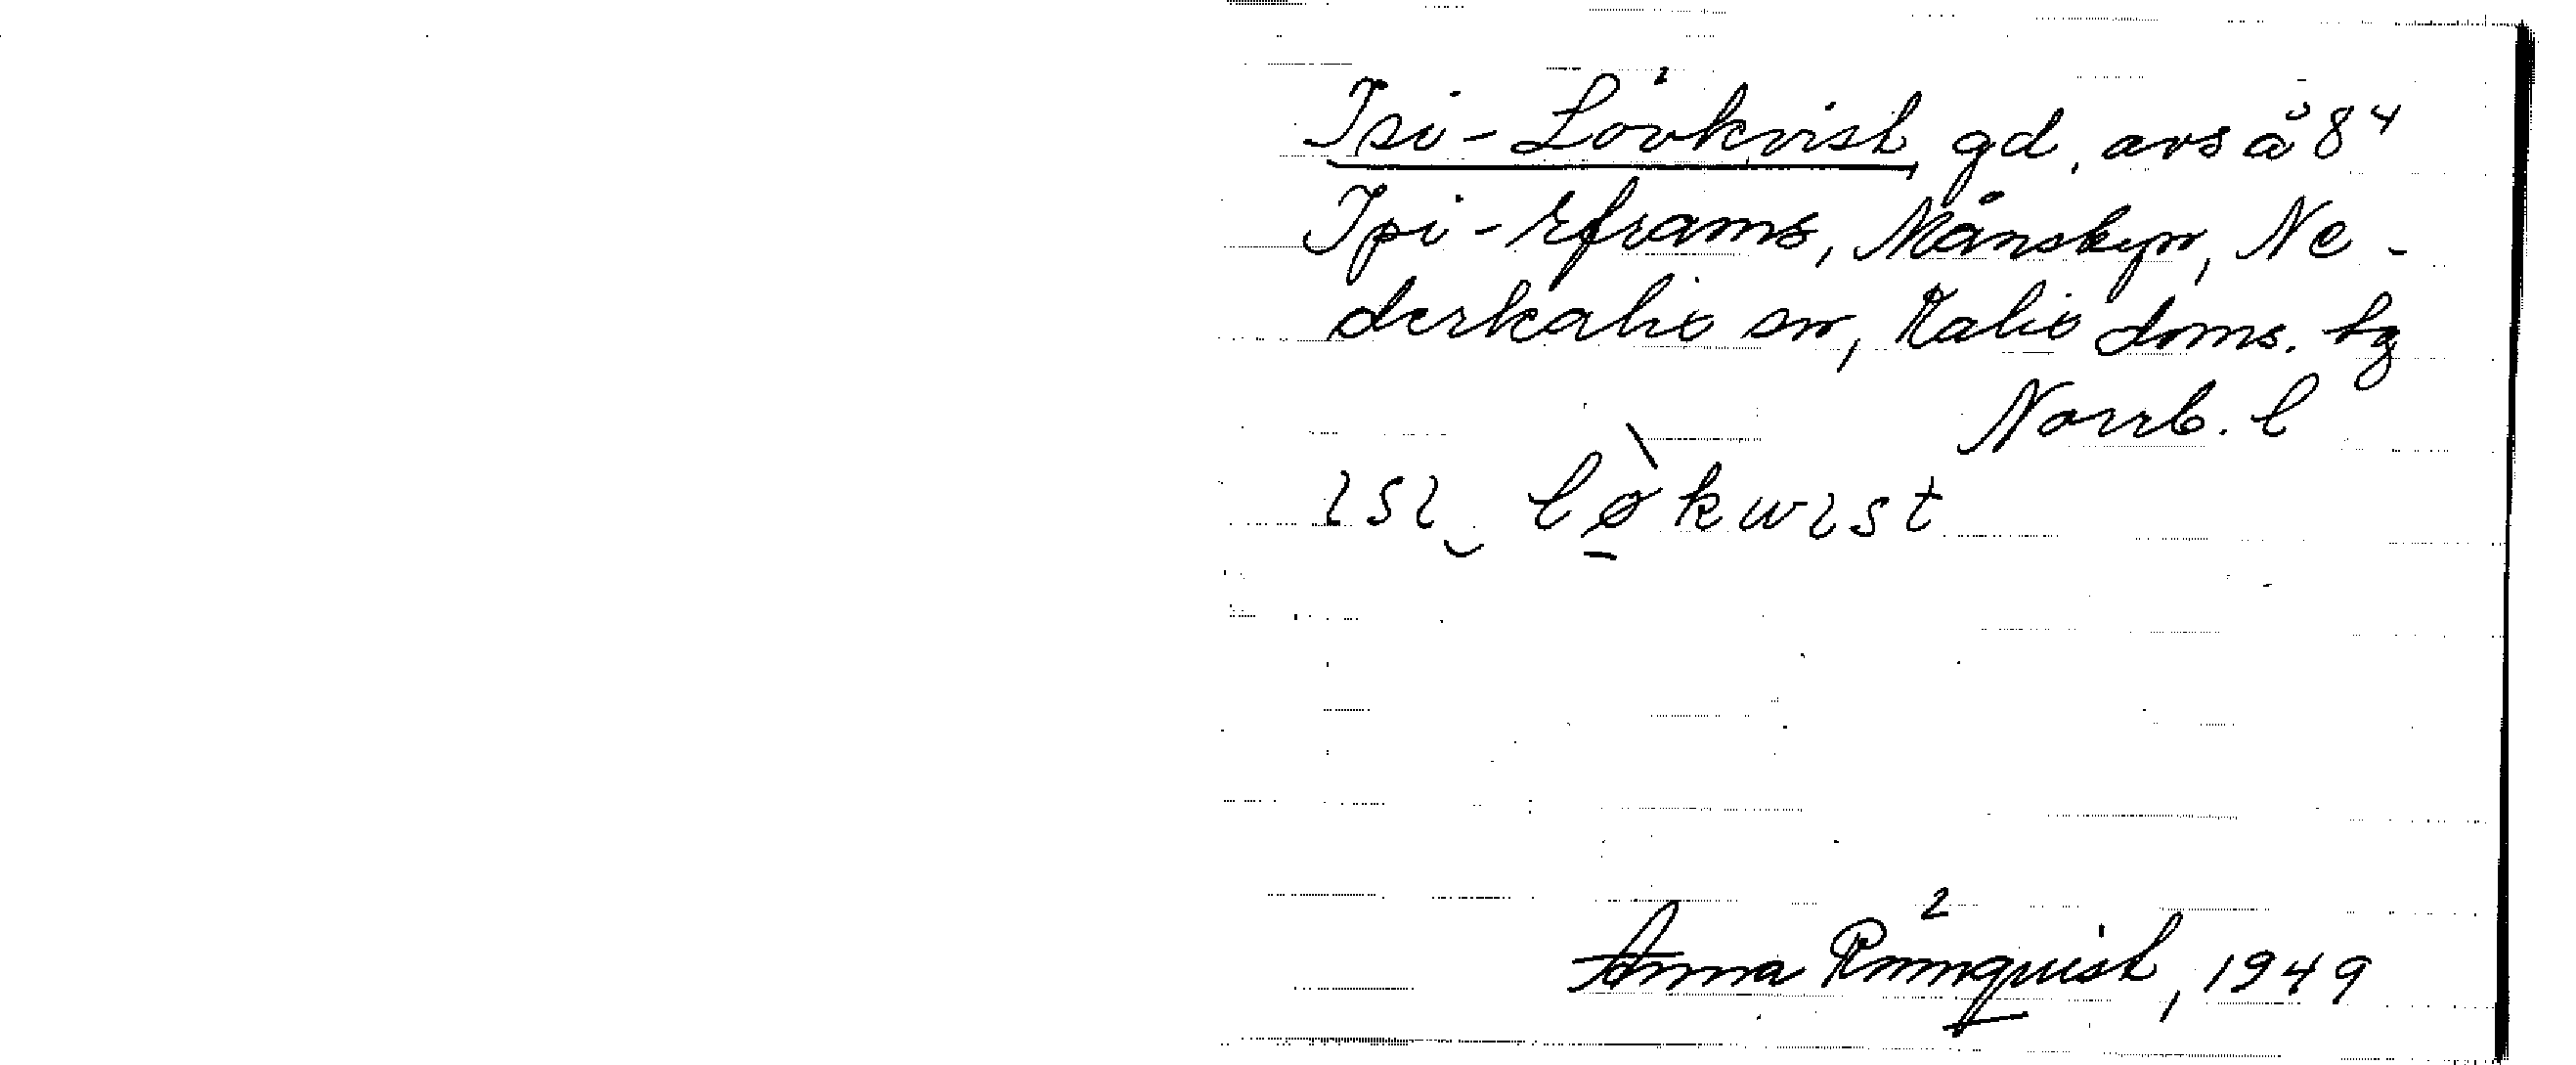 Isi-Lövkvist, gd. avs å 8⁴
Ipi-Eframs, Månsbyn, Ne-
derkalix sn, Kalix doms. tg
Norrb. l
ısı‿ lø̠̀kwıst
Anna Rönnquist, 1949